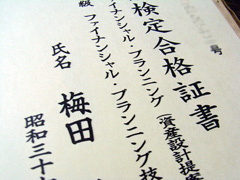 号
検定合格証書
ファイナンシャル・プランニング(資産設計提案
級 ファイナンシャル・プランニング技
氏名 梅田
昭和三十